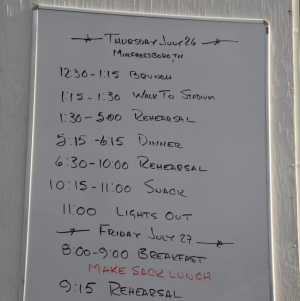 Thursday July 26
Murfreesboro, TN
12:30 - 1:15 Brunch
1:15 - 1:30 Walk To Stadium
1:30 - 5:00 Rehearsal
5:15 - 6:15 Dinner
6:30 - 10:00 Rehearsal
10:15 - 11:00 Snack
11:00 Lights Out
Friday July 27
8:00 - 9:00 Breakfast
Make Sack Lunch
9:15 Rehearsal